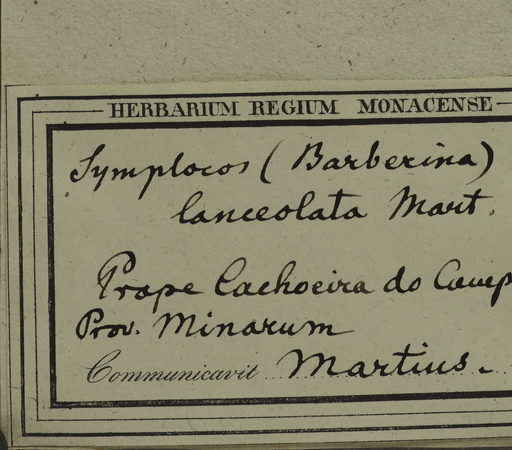 HERBARIUM REGIUM MONACENSE
Symplocos (Barberina)
lanceolata Mart.
Prope Cachoeira do
Prov. Minarum
Communicavit Martius.